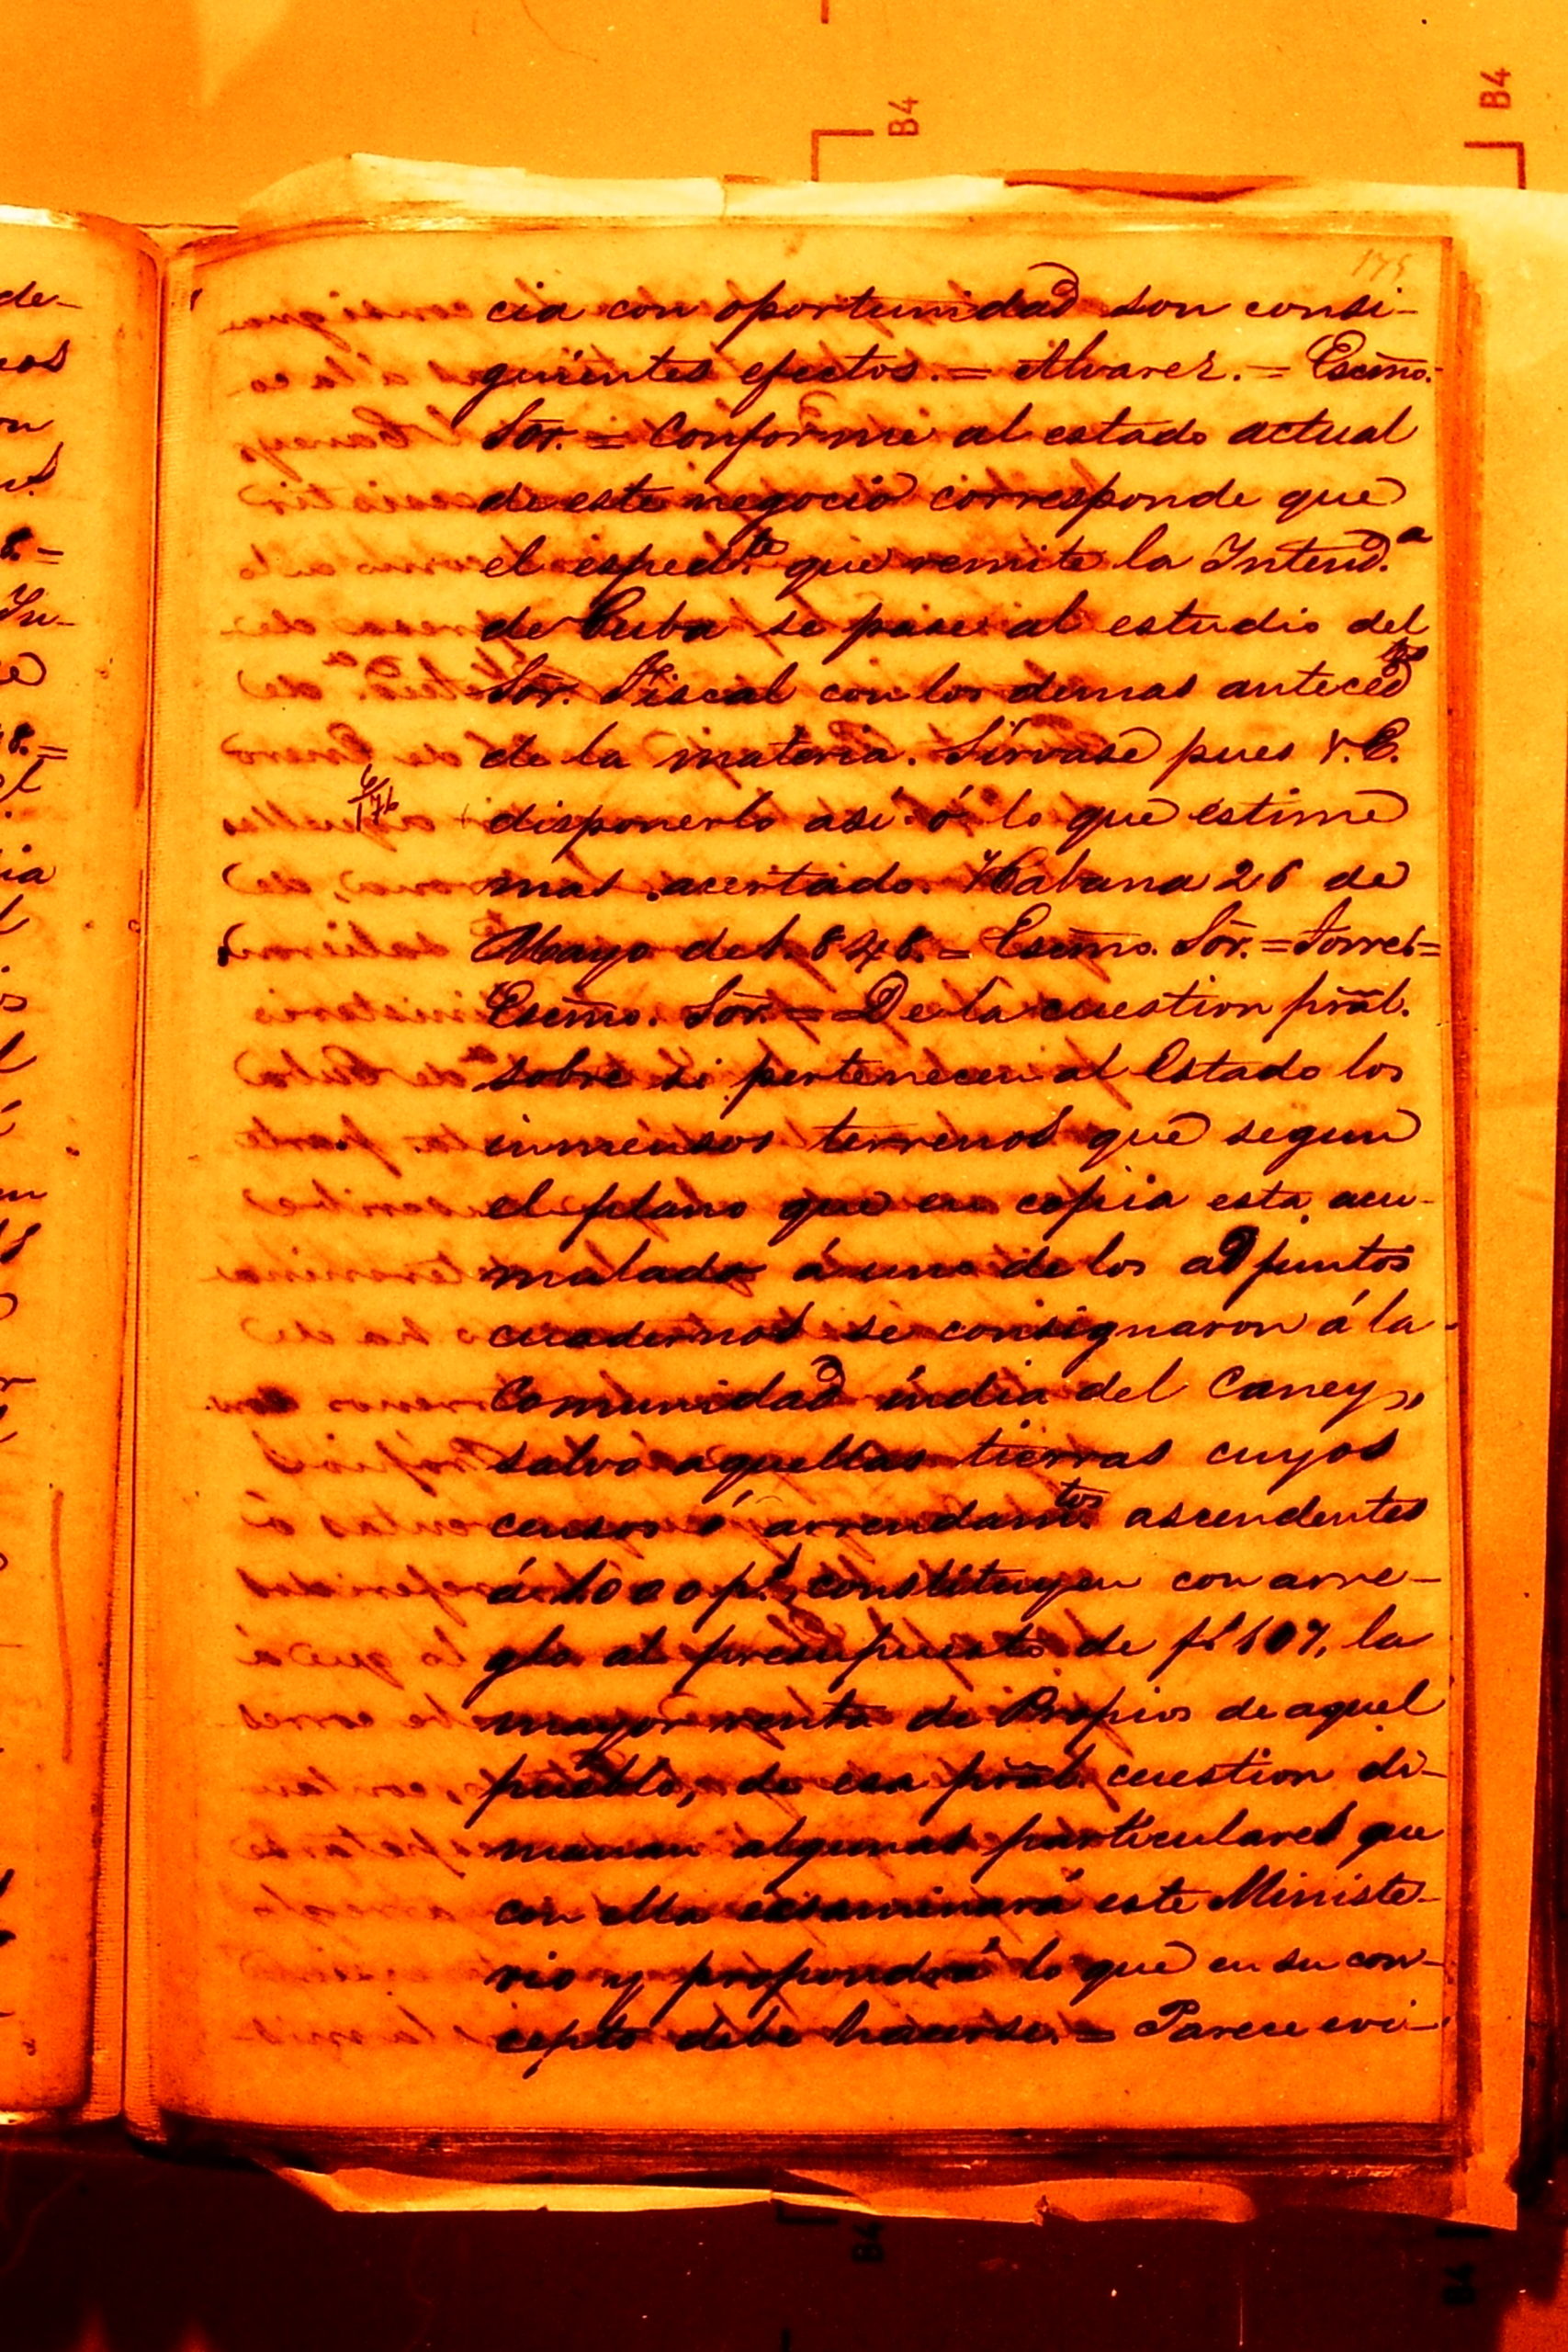 B4
B4
175
cia con oportunidad son consi-
guientes efectos. = Alvarez. = Escmo.
Sōr. = Conforme al estado actual
de este negocio corresponde que
el exped.te que remite la Intend.a
de Cuba se pase al estudio del
Sōr. Fiscal con los demas antecedtes
de la materia. Sírvase pues V.E.
6/176
disponerlo asi ó lo que estime
mas acertado. Habana 26 de
Mayo de 1.848. = Escmo. Sōr. = Torres =
Escmo. Sōr. = De la cuestion prāl.
sobre si pertenecen al Estado los
inmensos terrenos que segun
el plano que en copia esta acu-
mulado á uno de los adjuntos
cuadernos se consignaron á la
Comunidad india del Caney,
salvo aquellas tierras cuyos
censos ó arrendam.tos ascendentes
á 1.000 p.s constituyen con arre-
glo al presupuesto de f.s 107, la
mayor renta de Propios de aquel
pueblo, de esa prāl. cuestion di-
manan algunas particulares que
con ella ecsaminará este Ministe-
rio y propondrá lo que en su con-
cepto debe hacerse. = Parece evi-
B4
B4